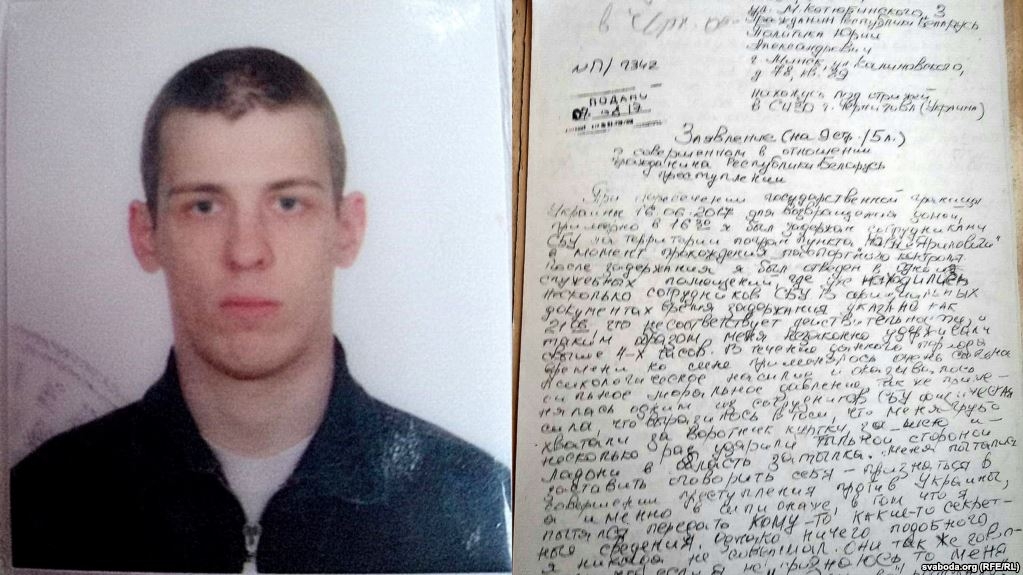 ул. М. Коцюбинского, 3
Гражданин Республики Беларусь
Политика Юрий
Александрович
г. Минск, ул. Калиновского,
нахожусь под стражей
в СИЗО г. Чернигова (Украина)
№П/
ПОДАНО
Заявление (на 9 стр./5 л.)
о совершенном в отношении
гражданина Республики Беларусь
преступлении
При пересечении государственной границы
Украины 16.06.2017 для возвращения домой,
примерно в 16 30 я был задержан сотрудниками
СБУ на территории погран. пункта
в момент прохождения паспортного контроля
после задержания я был отведен в одно из
служебных помещений, где уже находились
несколько сотрудников СБУ. В официальных
документах время задержания указано как
что не соответствует действительности, и
таким образом меня незаконно удерживали
свыше 4-х часов. В течение данного периода
времени ко мне применялось очень
психологическое насилие и оказывалось
сильное моральное давление, так же приме-
нялась одним из сотрудников СБУ физическая
сила, что выразилось в том что меня грубо
хватали за воротник куртки, за шею и
несколько раз ударили тыльной стороной
ладони в область затылка. Меня пытались
заставить оговорить себя - признаться в
совершении преступления против Украины,
а именно в том что я
пытался передать кому-то какие-то секрет-
ные сведения, однако ничего подобного
я никогда не совершал. Они так же
не признаюсь то меня
svaboda.org (RFE/RL)